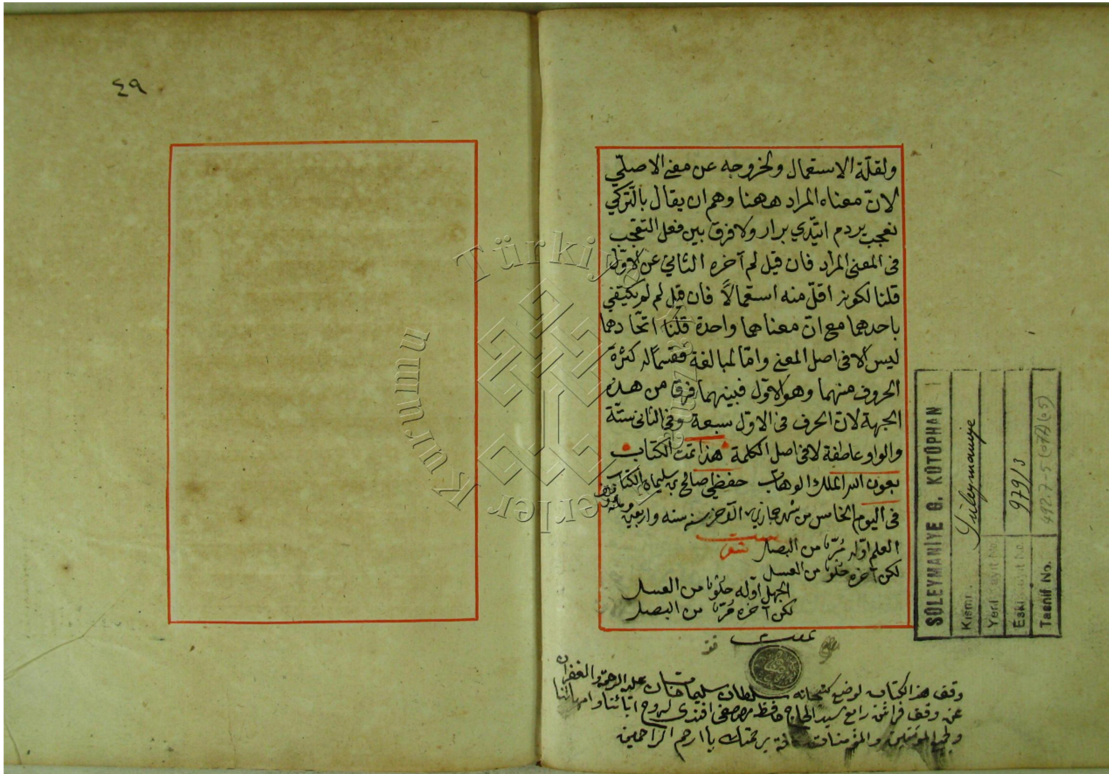 ٤٩
ولقلّة الاستعمال ولخروجه عن معنى الاصلي
لانّ معناه المراد ههنا وهم ان يقال بالتركي
تعجب يردم ايتدي برار ولا فرق بين فعل التعجب
فى المعنى المراد فان قيل لم آخره الثاني عن الاوّل
قلنا لكونه اقلّ منه استعمالاً فان قيل لم لم يكتفي
باحدهما مع انّ معناهما واحدة قلنا اتحادهما
ليس الا فى اصل المعنى وامّا لمبالغة كثرة
الحروف منهما وهو الاوّل فبينهما فرق من هذه
الجهة لانّ الحرف فى الاوّل سبعة وفى الثانى ستّة
والواو عاطفة لا فى اصل الكلمة هذا تمت الكتاب
بعون الله الملك الوهاب حفظي صالح بن سليمان الكتاب
فى اليوم الخامس من شهر سنه واربعين
تمت
العلم اوّله مُرّ من البصل
لكن آخره حلو من العسل
الجهل اوّله حلو من العسل
لكن آخره مُرّ من البصل
تمت
وقف هذا الكتاب لوضع كتبخانه سلطان سليمان خان عليه الرحمة والغفران
عن وقف سيد الحاج حافظ مصطفى افندى لروح ابائنا وامهاتنا
ولجميع المؤمنين والمؤمنات برحمتك يا ارحم الراحمين
SÜLEYMANİYE G. KÜTÜPHANESİ
Kısmı Süleymaniye
Yeni Kayıt No.
Eski Kayıt No. 979/3
Tasnif No. 492.7-5
Türkiye Yazma Eserler Kurumu